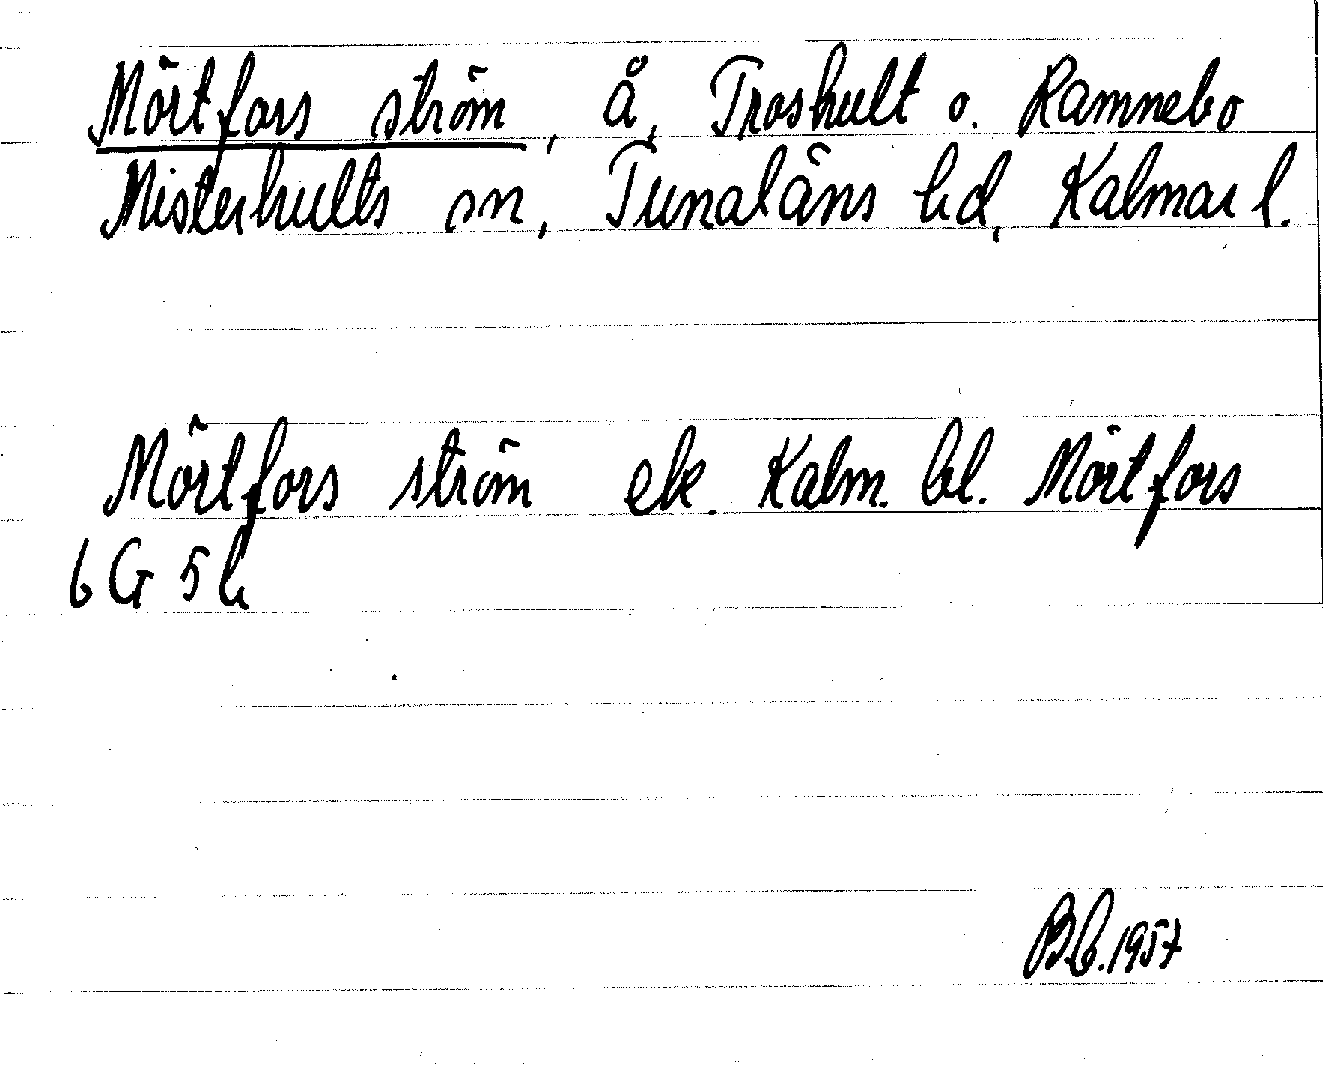 Mörtfors ström, å, Troshult o. Ramnebo
Misterhults sn, Tunaläns hd, Kalmar l.
Mörtfors ström ek. Kalm. bl. Mörtfors
6 G 5 h
BC. 1957